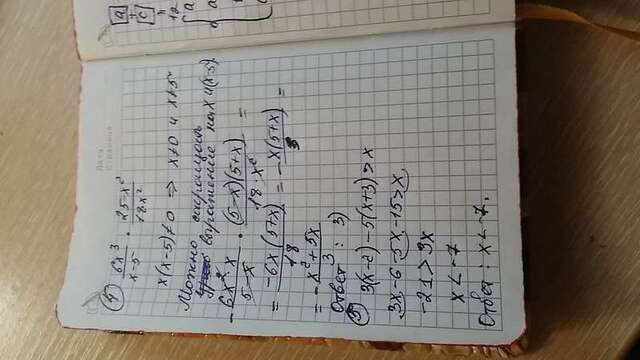 Дата
Страница
4) 6x³/(x-5) · (25-x²)/(18x²)
x(x-5)≠0 ⇒ x≠0 и x≠5
Можно сокращать
выражение на x и (x-5)
-(6x²·x)/(5-x) · ((5-x)(5+x))/(18·x²) =
= (-6x(5+x))/18 = -(x(5+x))/3 =
= -(x²+5x)/3
Ответ : 3)
5) 3(x-2)-5(x+3)>x
3x-6-5x-15>x
-21>3x
x<-7
Ответ : x<-7.